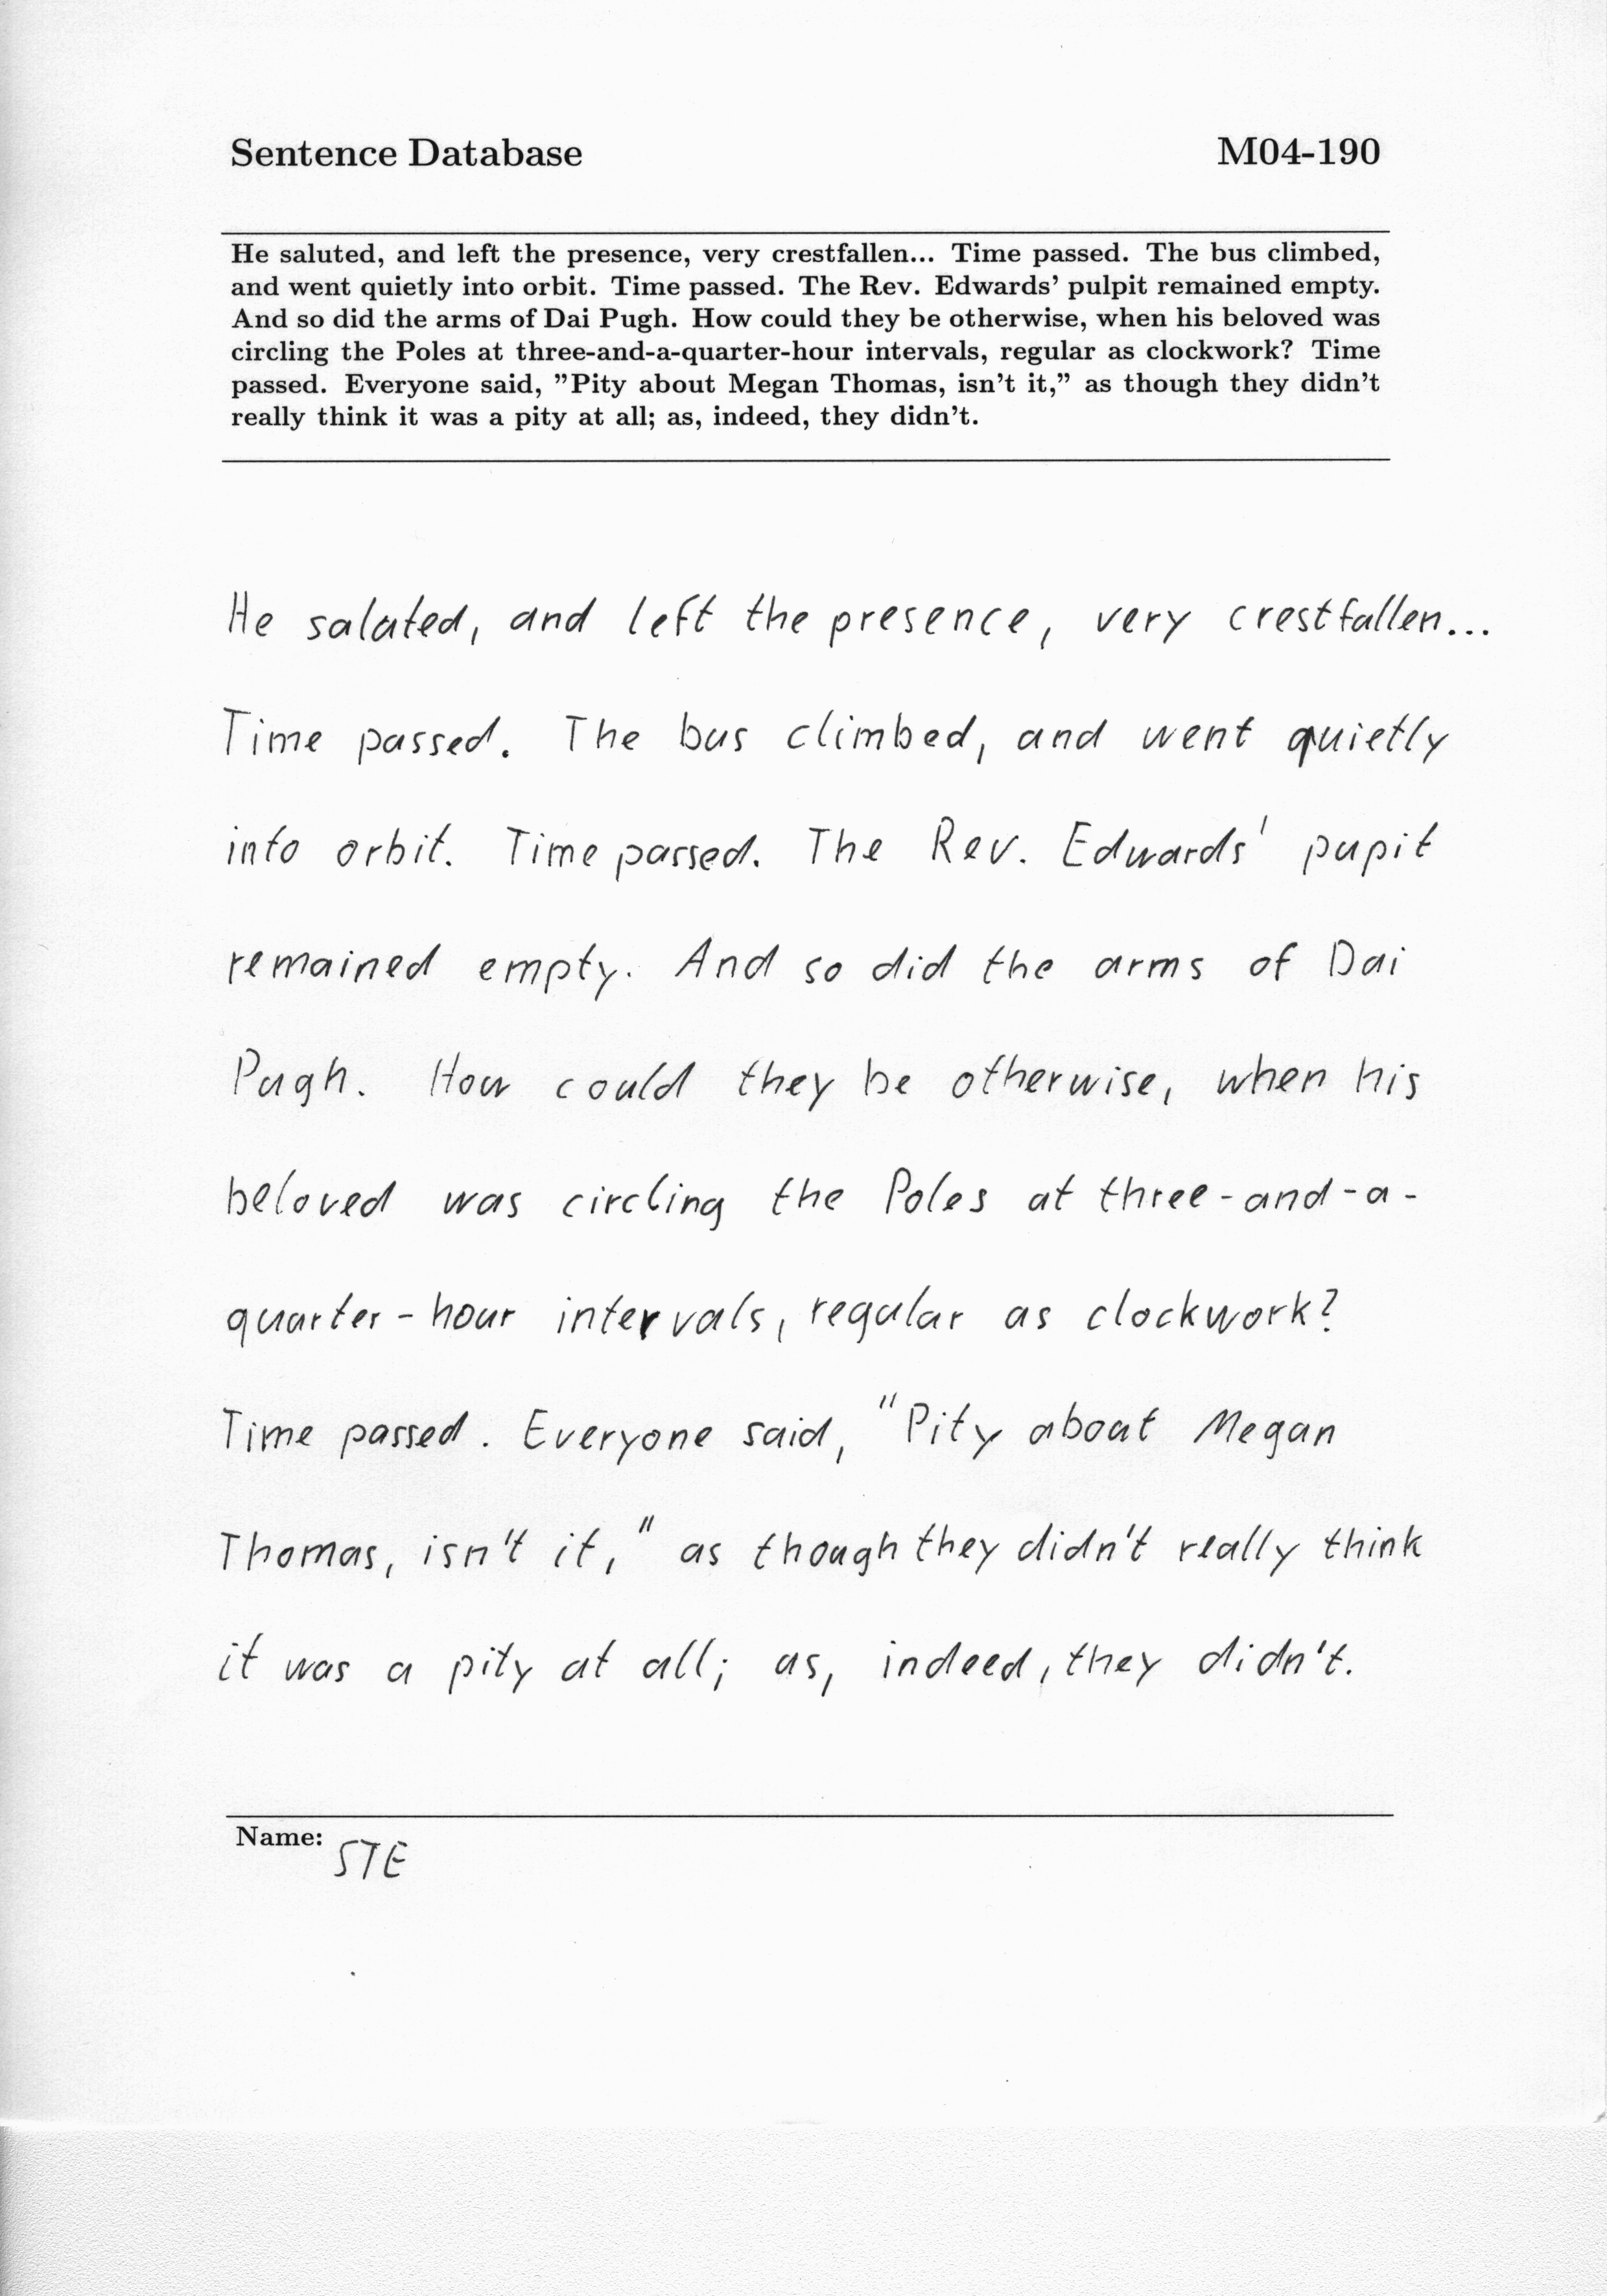 Sentence Database M04-190
He saluted, and left the presence, very crestfallen... Time passed. The bus climbed,
and went quietly into orbit. Time passed. The Rev. Edwards' pulpit remained empty.
And so did the arms of Dai Pugh. How could they be otherwise, when his beloved was
circling the Poles at three-and-a-quarter-hour intervals, regular as clockwork? Time
passed. Everyone said, "Pity about Megan Thomas, isn't it," as though they didn't
really think it was a pity at all; as, indeed, they didn't.
He saluted, and left the presence, very crestfallen...
Time passed. The bus climbed, and went quietly
into orbit. Time passed. The Rev. Edwards' pupit
remained empty. And so did the arms of Dai
Pugh. How could they be otherwise, when his
beloved was circling the Poles at three-and-a-
quarter-hour intervals, regular as clockwork?
Time passed. Everyone said, "Pity about Megan
Thomas, isn't it," as though they didn't really think
it was a pity at all; as, indeed, they didn't.
Name: STE